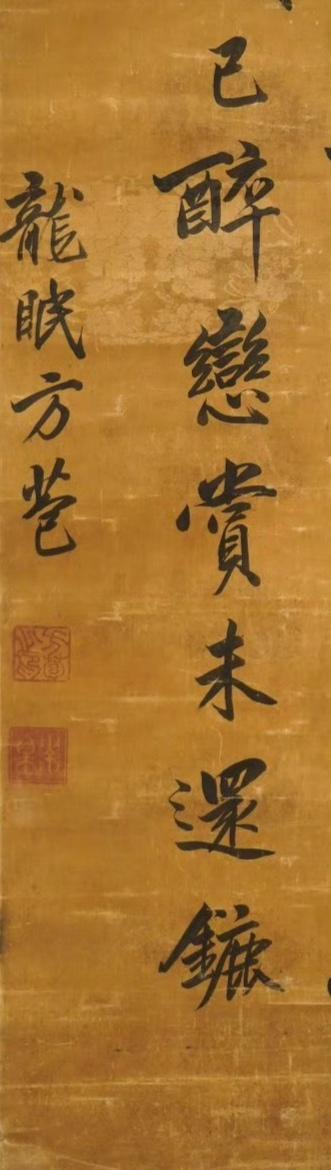 已醉戀賞未還鑣
龍眠方苞